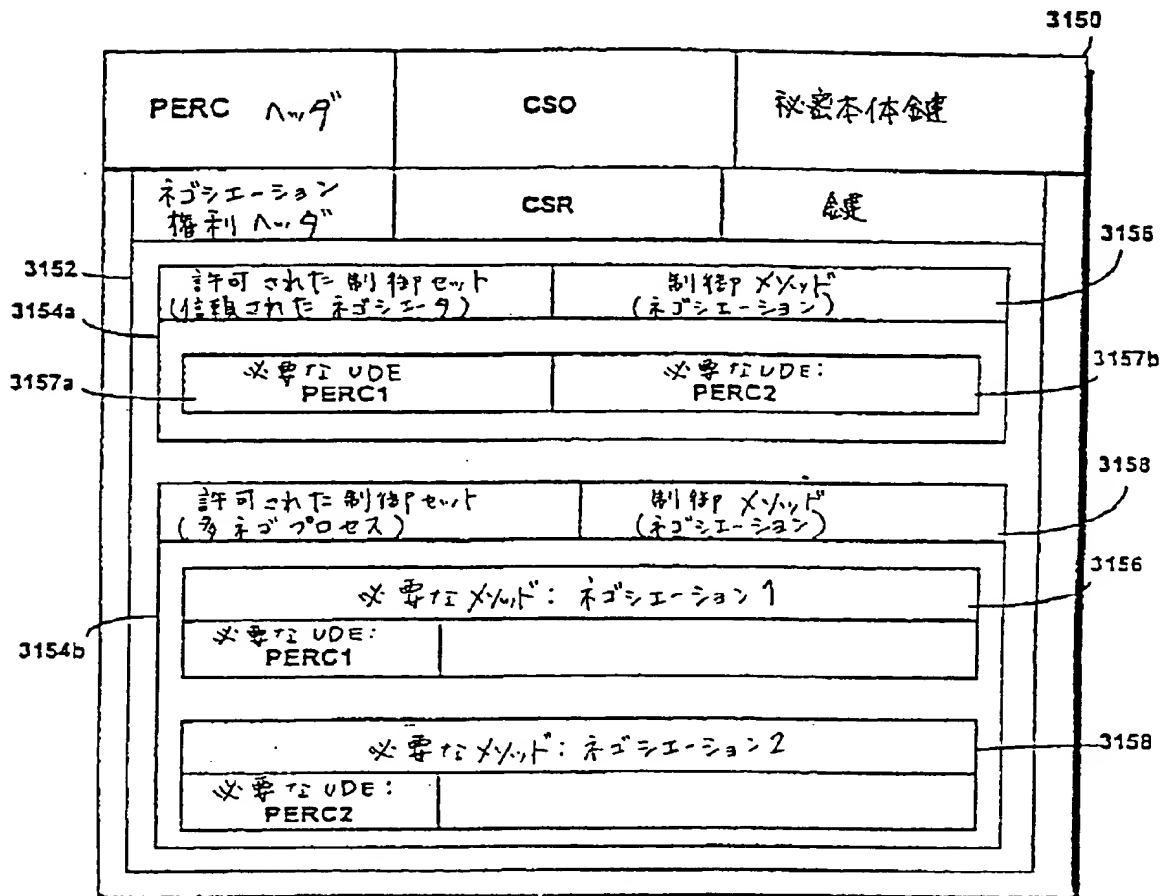 3150
PERC ヘッダ
CSO
秘密本体鍵
ネゴシエーション
権利ヘッダ
CSR
鍵
3156
3152
許可された制御セット
(信頼されたネゴシエータ)
制御メソッド
(ネゴシエーション)
3154a
3157a
必要なUDE
PERC1
必要なUDE:
PERC2
3157b
3158
許可された制御セット
(多ネゴプロセス)
制御メソッド
(ネゴシエーション)
3156
必要なメソッド: ネゴシエーション1
3154b
必要なUDE:
PERC1
必要なメソッド: ネゴシエーション2
3158
必要なUDE:
PERC2